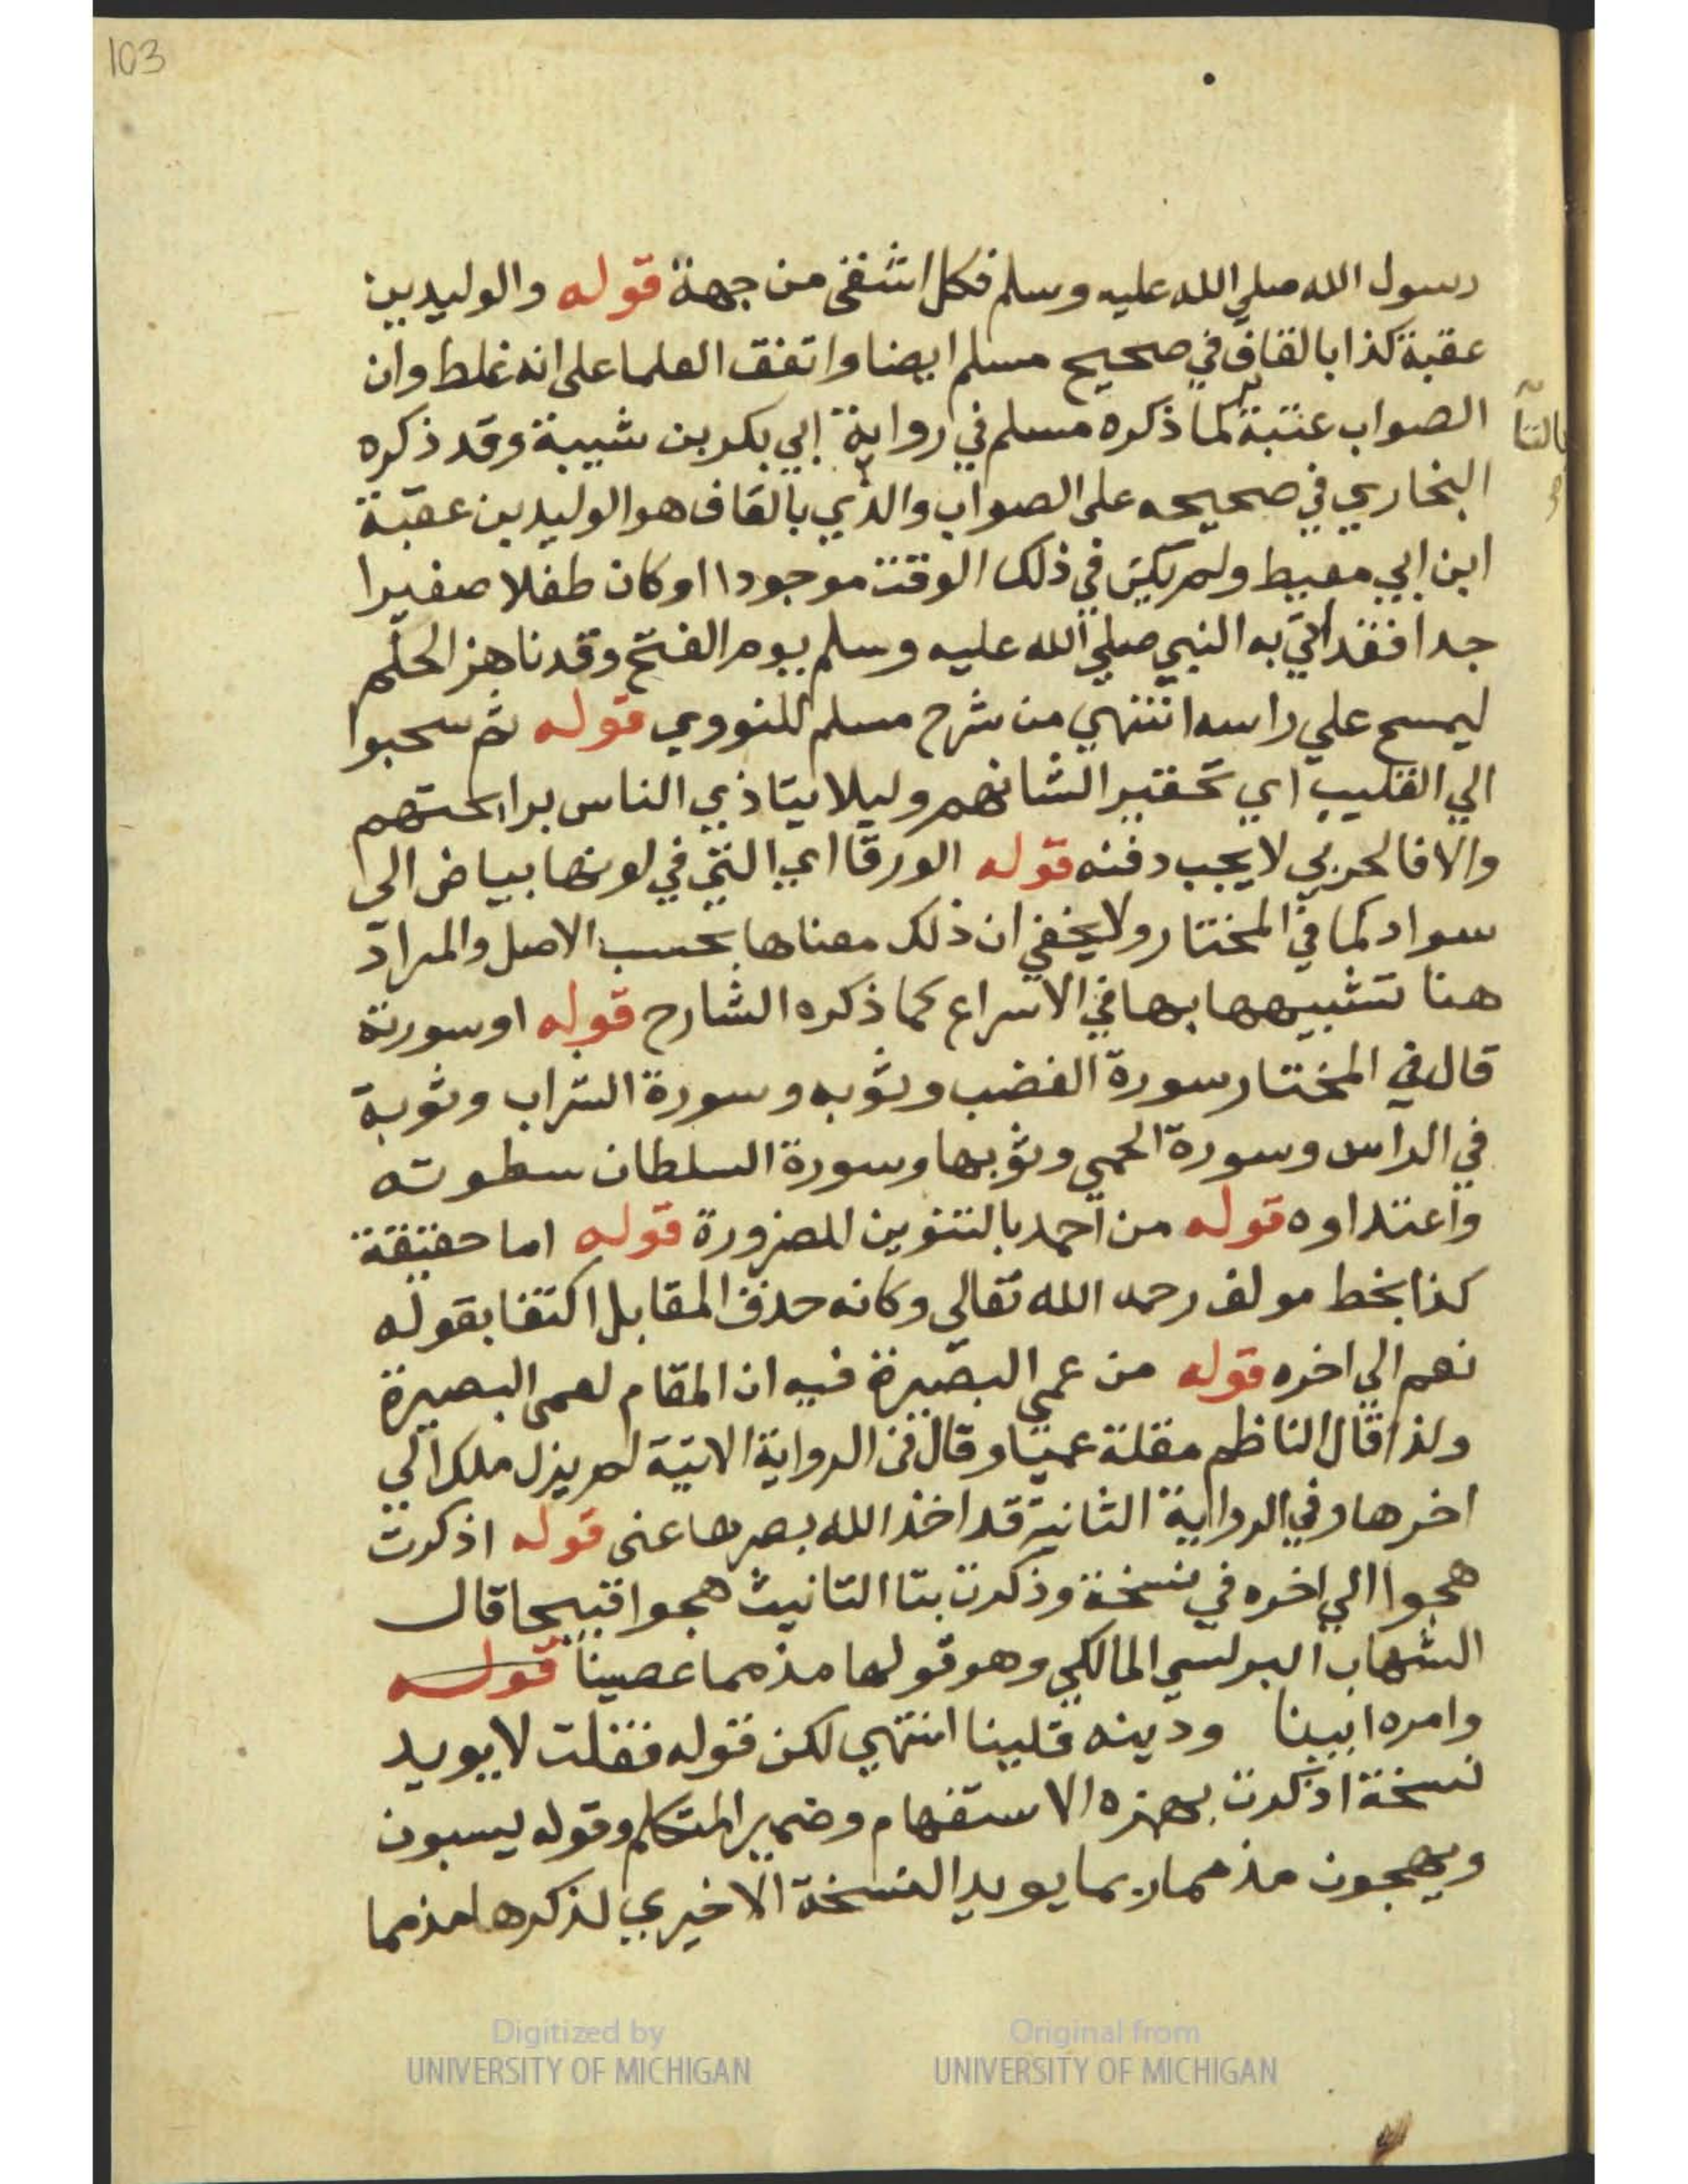 103
رسول الله صلي الله عليه وسلم فكل اشقى من جهة قوله والوليد بن
عقبة كذا بالقاف في صحيح مسلم ايضا واتفق العلما على انه غلط وان
الصواب عتبة كما ذكره مسلم في رواية ابي بكر بن شيبة وقد ذكره
بالتا
صح
البخاري في صحيحه على الصواب والذي بالقاف هو الوليد بن عقبة
ابن ابي معيط ولم يكن في ذلك الوقت موجودا او كان طفلا صغيرا
جدا فقد اتي به النبي صلي الله عليه وسلم يوم الفتح وقد ناهز الحلم
ليمسح علي راسه انتهي من شرح مسلم للنووي قوله ثم سحبوا
الي القليب اي تحقيرا لشانهم وليلا يتاذي الناس برائحتهم
والا فالحربي لا يجب دفنه قوله الورقا اي التي في لونها بياض الي
سواد كما في المختار ولا يخفي ان ذلك معناها بحسب الاصل والمراد
هنا تشبيهها بها في الاسراع كما ذكره الشارح قوله او سورة
قال في المختار سورة الغضب وثوبه وسورة الشراب وثوبة
في الراس وسورة الحمي وثوبها وسورة السلطان سطوته
واعتداوه قوله من احمد بالتنوين للضرورة قوله اما حقيقة
كذا بخط مولف رحمه الله تعالي وكانه حذف المقابل اكتفا بقوله
نعم الي اخره قوله من عمي البصيرة فيه ان المقام لعمى البصيرة
ولذا قال الناظم مقلة عميا وقال في الرواية الاتية لم يزل ملك الي
اخرها وفي الرواية الثانية قد اخذ الله بصرها عني قوله اذكرت
هجوا الي اخره في نسخة وذكرت بتا التانيث هجوا قبيحا قال
الشهاب البرلسي المالكي وهو قولها مذمما عصينا قوله
وامره ابينا ودينه قلينا انتهي لكن قوله فقلت لا يويد
نسخة اذكرت بهمزه الاستفهام وضمير المتكلم وقوله يسبون
ويهجون مذمما ربما يويد النسخة الاخيري لذكرها مذمما
Digitized by
UNIVERSITY OF MICHIGAN
Original from
UNIVERSITY OF MICHIGAN